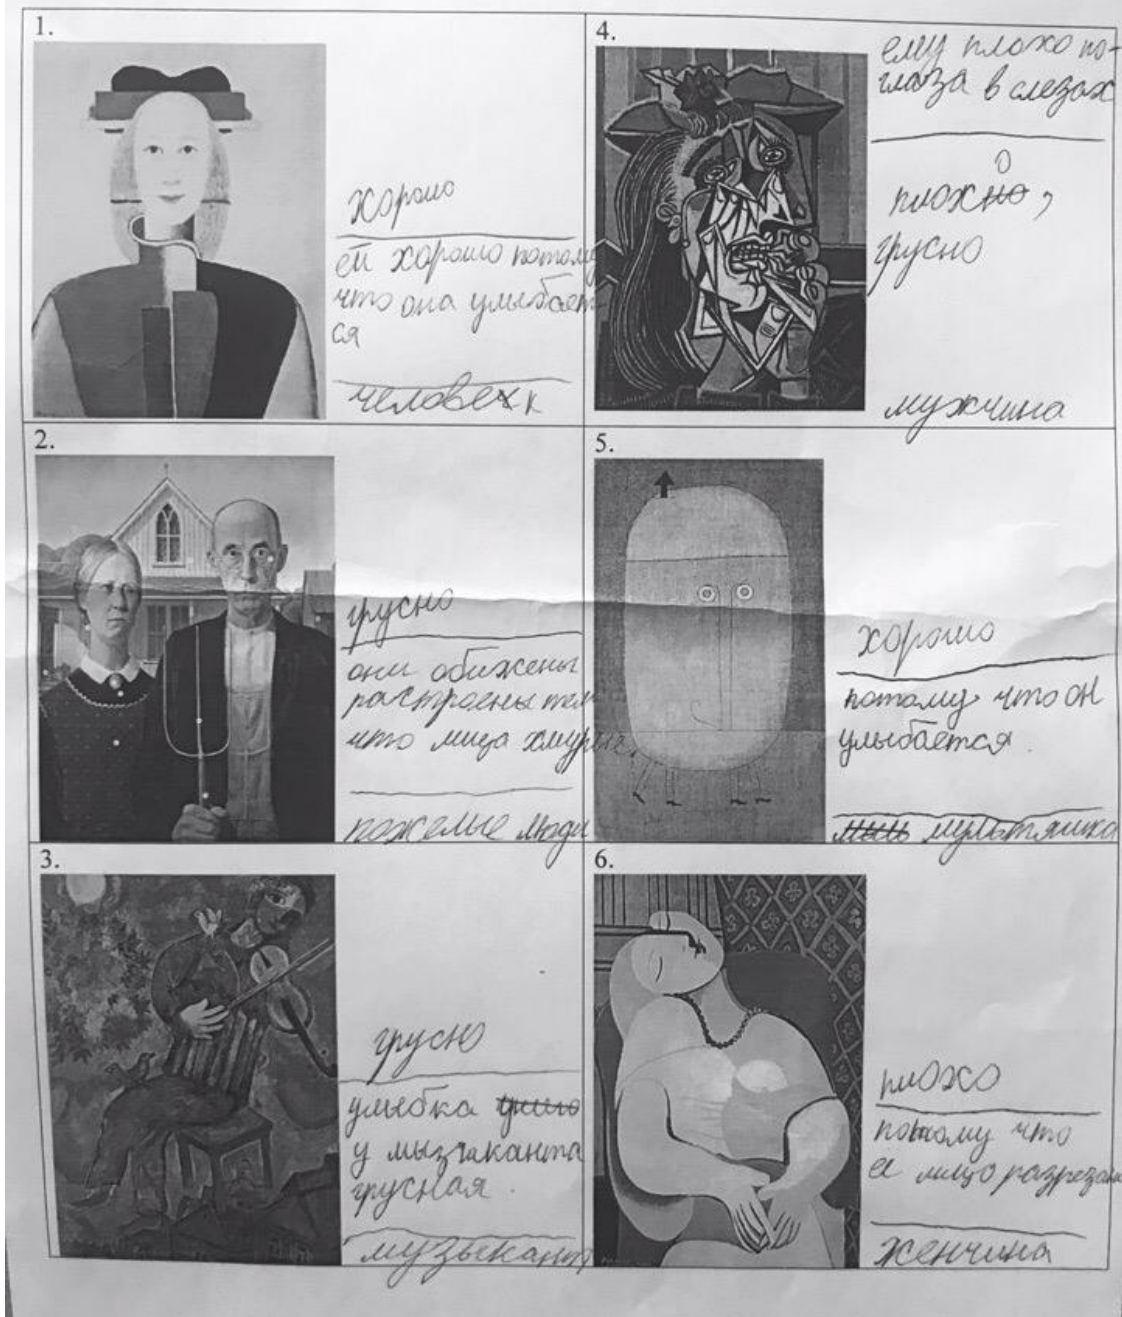 1.
хорошо
ей хорошо потому
что она улыбает
ся
человек
2.
грусно
они обижены
растроены тем
что лица хмурые
пожелые люди
3.
грусно
улыбка
у мызчаканта
грусная.
музыкант
4.
ему плохо по-
глаза в слезах
плохо,
грусно
мужчина
5.
хорошо
потому что он
улыбается.
мультяшка
6.
плохо
потому что
ее лицо разрезан
женчина